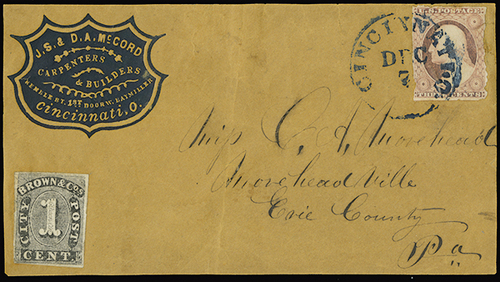 J.S. & D.A. McCORD
CARPENTERS
& BUILDERS
GEMILLE ST. 1ST DOOR W. EATMILLER
Cincinnati, O.
CINCINNATI O.
DEC
7
U.S. POSTAGE
THREE CENTS
Miss C. A. Moorehead
Mooreheadville
Erie County
Pa
BROWN & CO'S
CITY POST
1
CENT.